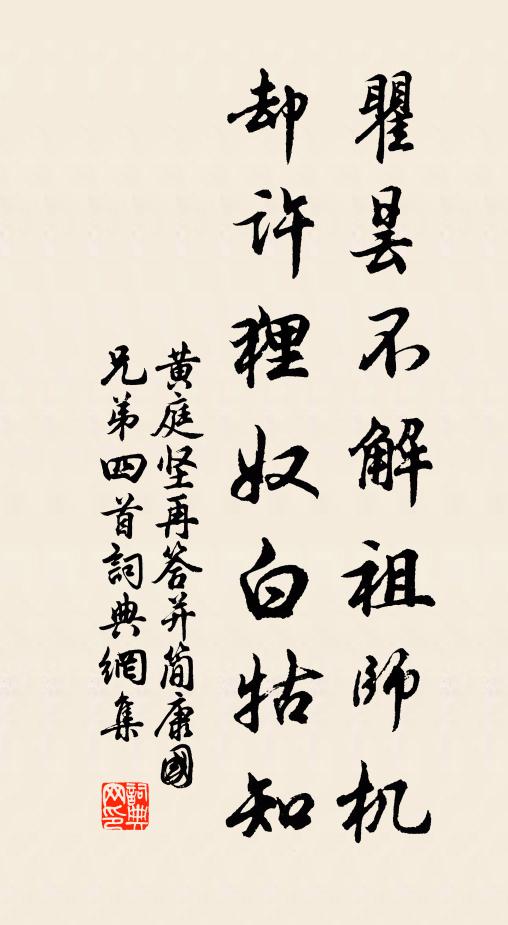 瞿昙不解祖师机
却许狸奴白牯知
黄庭坚再答并简康國
兄弟四首詞典網集
詞典
网印